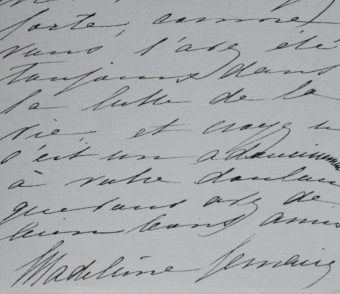 forte, comme
vous l'avez été
toujours dans
la lutte de la
vie, et croyez
c'est un adoucissement
à votre douleur
que vous avez de
bien bons amis
Madeleine Lemaire